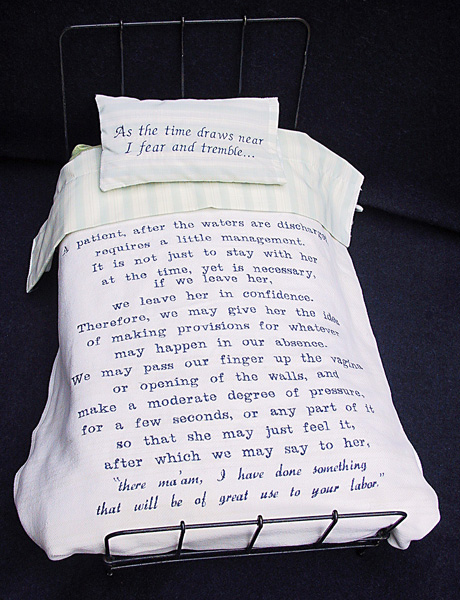 As the time draws near
I fear and tremble...
A patient, after the waters are discharged
requires a little management.
It is not just to stay with her
at the time, yet is necessary,
if we leave her,
we leave her in confidence.
Therefore, we may give her the idea
of making provisions for whatever
may happen in our absence.
We may pass our finger up the vagina
or opening of the walls, and
make a moderate degree of pressure,
for a few seconds, or any part of it
so that she may just feel it,
after which we may say to her,
"there ma'am, I have done something
that will be of great use to your labor."